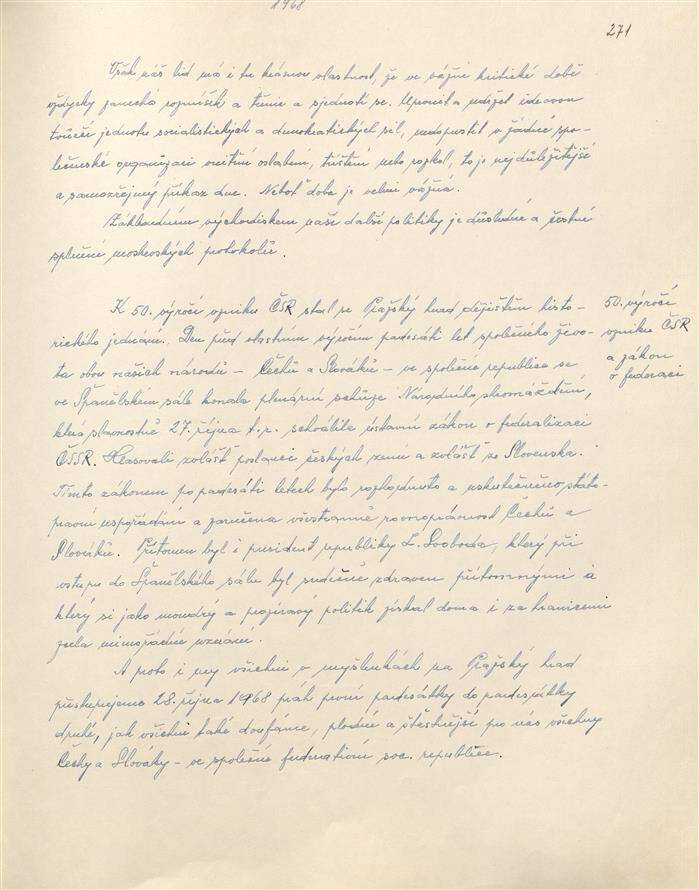 1968
271
Však náš lid má i tu krásnou vlastnost, že ve vážné kritické době
vždycky zanechá rozmíšek a tříště a sjednotí se. Upevnit a udržet ideovou
tvůrčí jednotu socialistických a demokratických sil, nedopustit v žádné spo-
lečenské organizaci vnitřní oslabení, tříštění nebo rozkol, to je nejdůležitější
a samozřejmý příkaz dne. Neboť doba je velmi vážná.
Základním východiskem naší další politiky je důsledné a čestné
splnění moskevských protokolů.
K 50. výročí vzniku ČSR stal se Pražský hrad dějištěm histo-
rického jednání. Den před vlastním výročím padesáti let společného živo-
ta obou našich národů - Čechů a Slováků - ve společné republice se
ve Španělském sále konala plenární schůze Národního shromáždění,
která slavnostně 27. října t.r. schválila ústavní zákon o federalizaci
ČSSR. Hlasovali zvlášť poslanci českých zemí a zvlášť ze Slovenska.
Tímto zákonem po padesáti letech bylo rozhodnuto a uskutečněno státo-
právní uspořádání a zaručena všestranně rovnoprávnost Čechů a
Slováků. Přítomen byl i president republiky L. Svoboda, který při
vstupu do Španělského sálu byl srdečně zdraven přítomnými a
který si jako moudrý a prozíravý politik získal doma i za hranicemi
zcela mimořádné uznání.
A proto i my všichni v myšlenkách na Pražský hrad
přestupujeme 28. října 1968 práh první padesátky do padesátky
druhé, jak všichni také doufáme, plodné a šťastnější pro nás všechny
Čechy a Slováky - ve společné federativní soc. republice.
50. výročí
vzniku ČSR
a zákon
o federaci